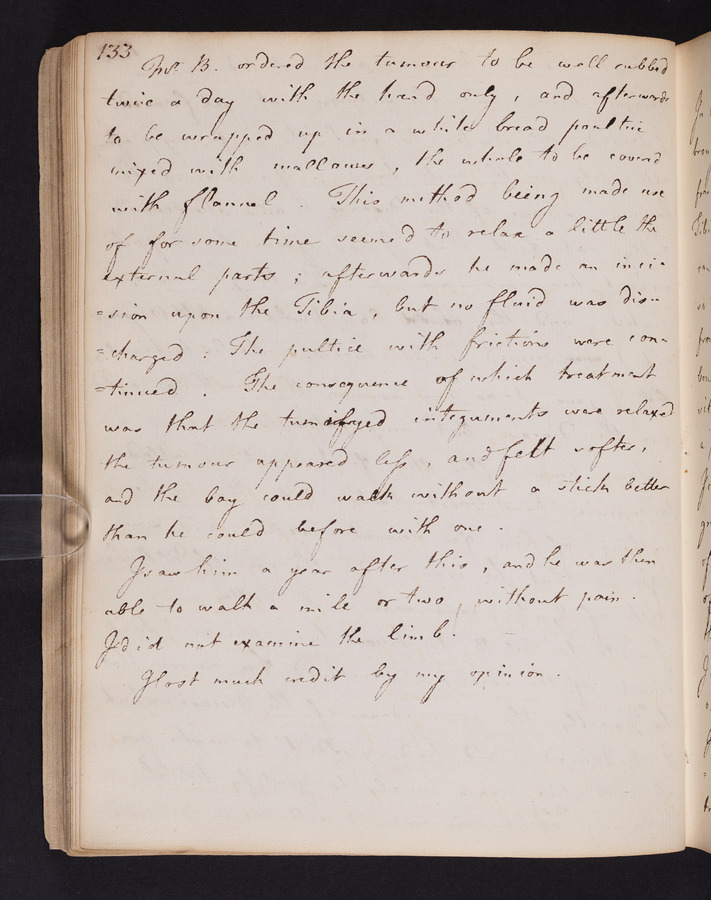 133
Mr. B. ordered the tumour to be well rubbed
twice a day with the hand only, and afterwards
to be wrapped up in a white bread poultice
mixed with mallows, the whole to be coverd
with flannel. This method being made use
of for some time seemed to relax a little the
external parts; afterwards he made an inci-
=sion upon the Tibia, but no fluid was dis-
=charged: The pultice with frictions were con-
=tinued. The consequence of which treatment
was that the tumifyed integuments were relaxed
the tumour appeared less, and felt softer,
and the boy could walk without a stick better
than he could before with one.
I saw him a year after this, and he was then
able to walk a mile or two, without pain.
I did not examine the limb.
I lost much credit by my opinion.